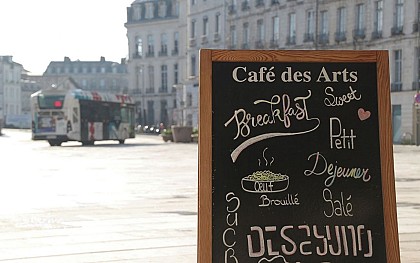 Café des Arts
Breakfast
Sweet
Petit
Déjeuner
Œuf
Brouillé
Salé
SUCR
DESAYUNO